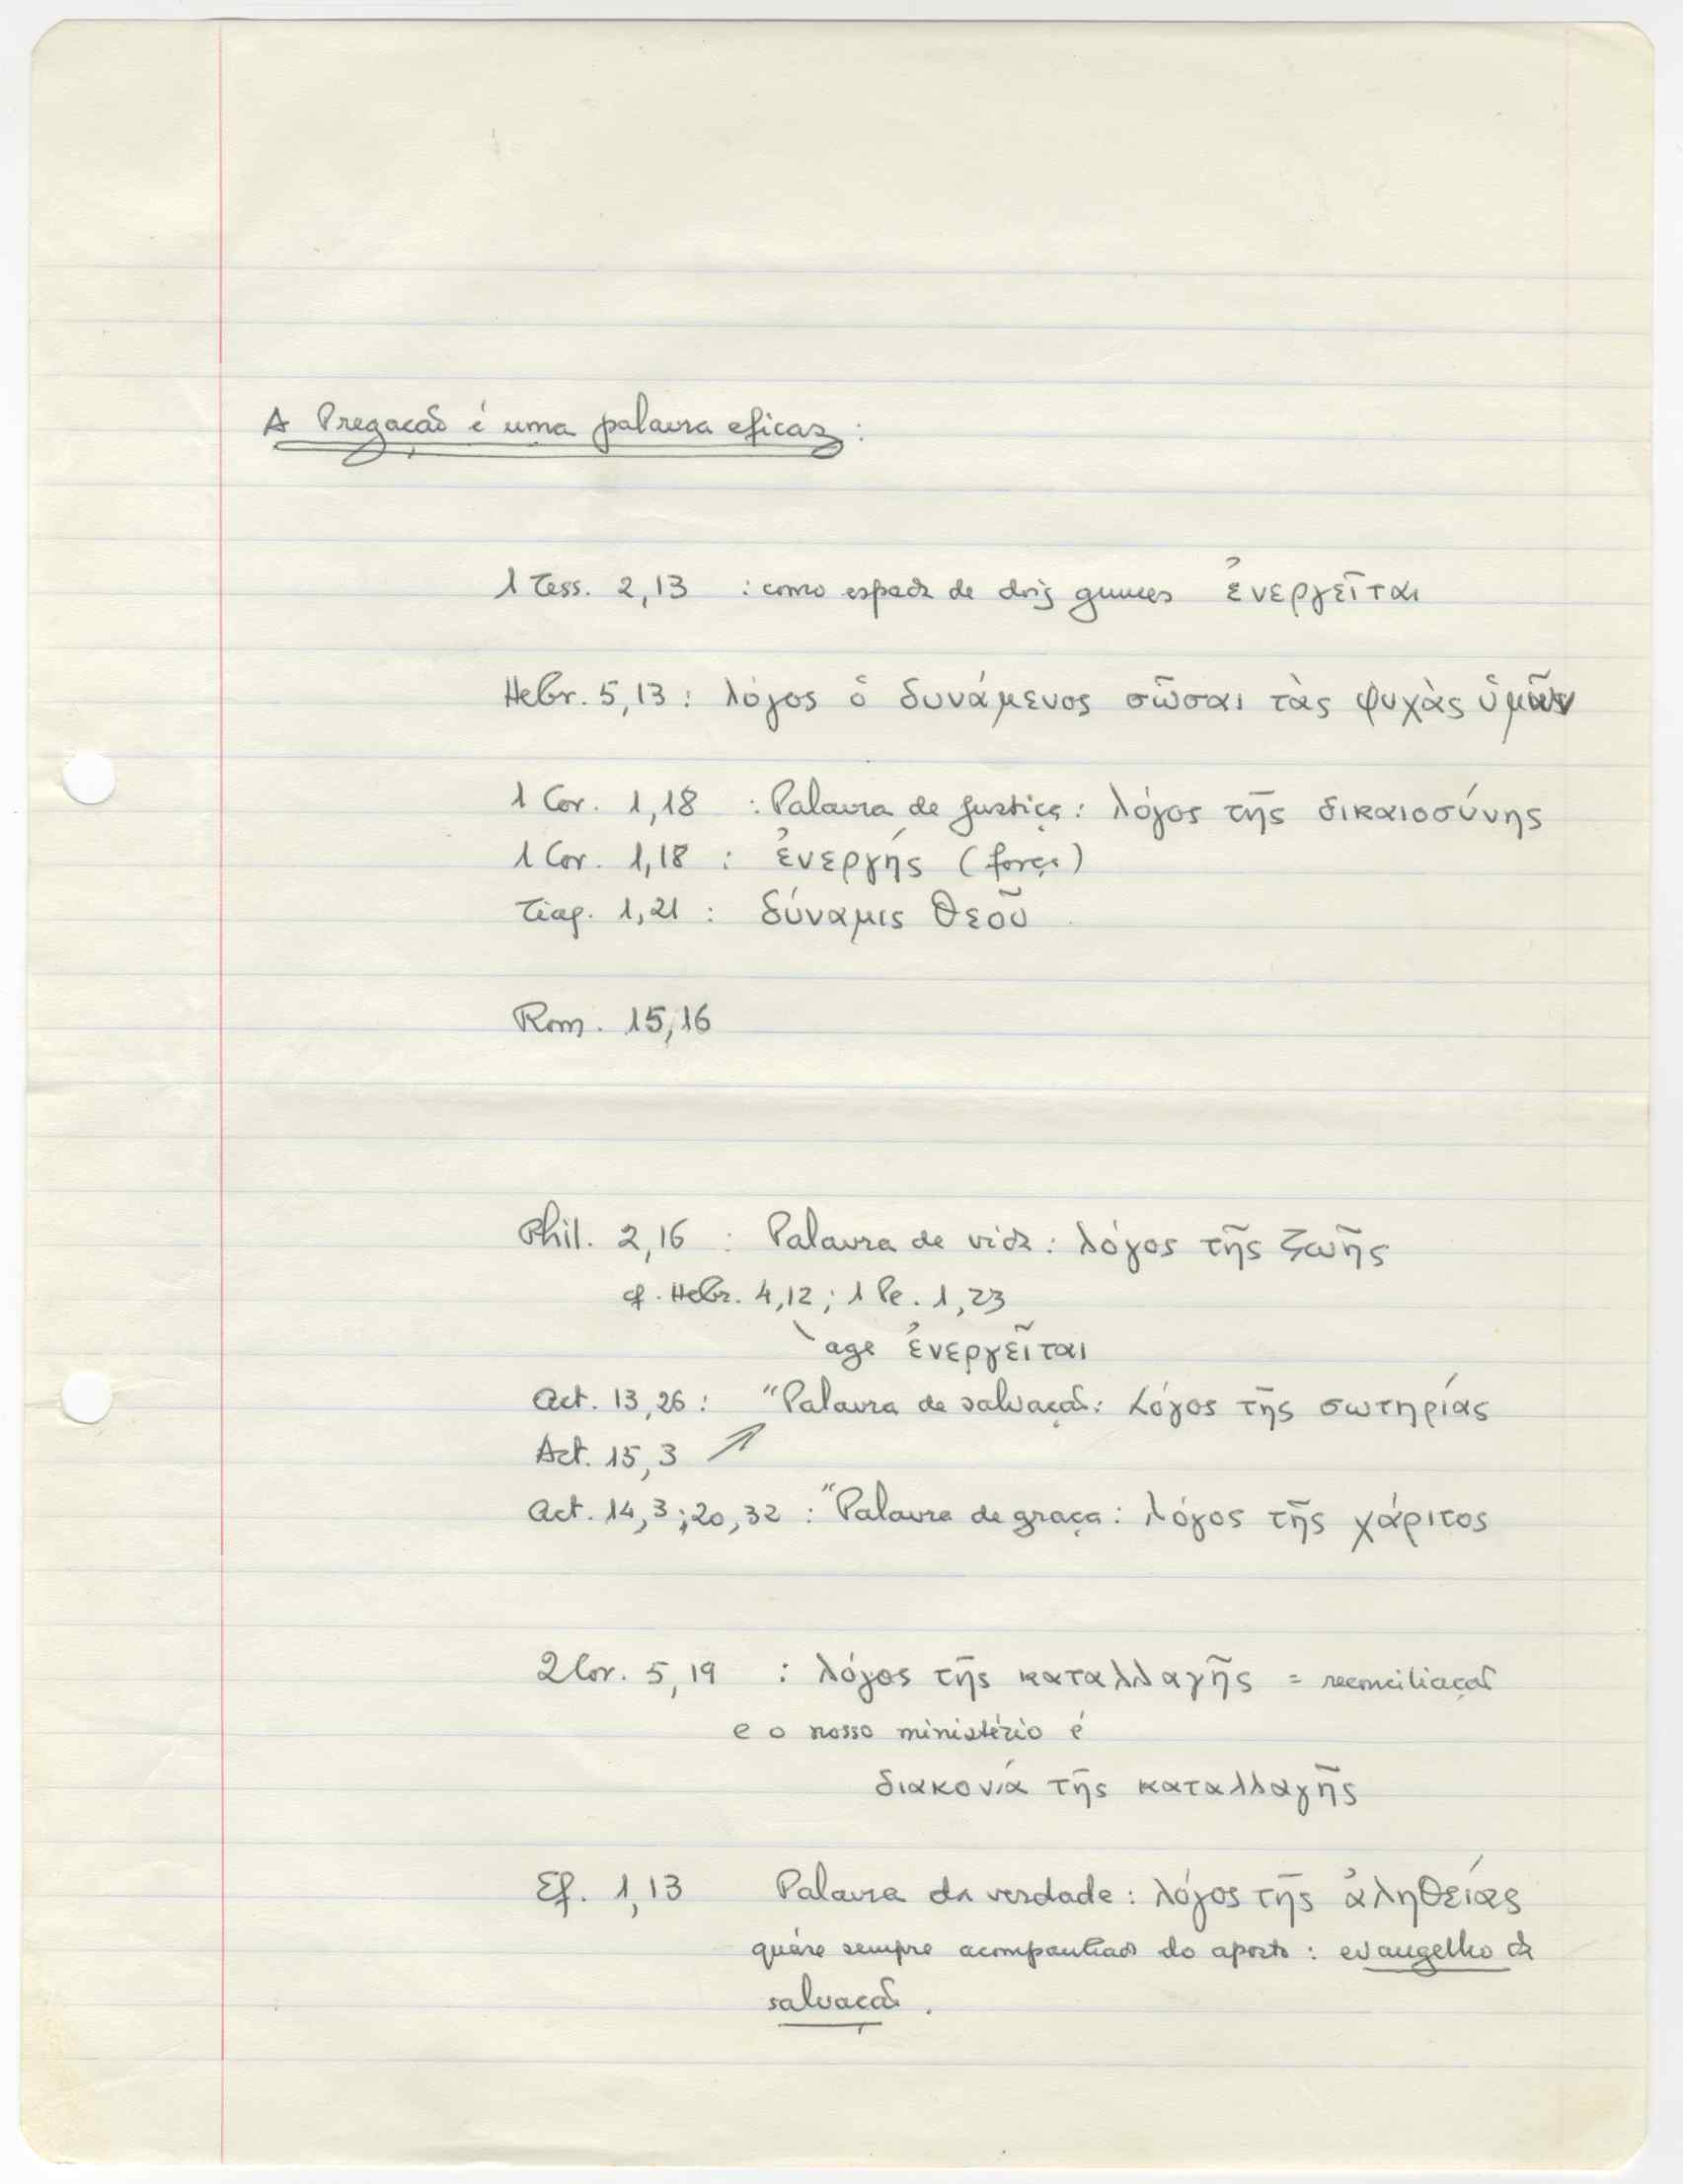 A Pregação é uma palavra eficaz :
1 Tess. 2,13 : como espada de dois gumes ἐνεργεῖται
Hebr. 5,13 : λόγος ὁ δυνάμενος σῶσαι τὰς ψυχὰς ὑμῶν
1 Cor. 1,18 : Palavra de Justiça : λόγος τῆς δικαιοσύνης
1 Cor. 1,18 : ἐνεργής (força)
Tiag. 1,21 : δύναμις Θεοῦ
Rom. 15,16
Phil. 2,16 : Palavra de vida : λόγος τῆς ζωῆς
cf. Hebr. 4,12 ; 1 Pe. 1,23
age ἐνεργεῖται
Act. 13,26 : "Palavra de salvação : λόγος τῆς σωτηρίας
Act. 15,3 ↗
Act. 14,3 ; 20,32 : "Palavra de graça : λόγος τῆς χάριτος
2 Cor. 5,19 : λόγος τῆς καταλλαγῆς = reconciliação
e o nosso ministério é
διακονιά τῆς καταλλαγῆς
Ef. 1,13 Palavra da verdade : λόγος τῆς ἀληθείας
sempre acompanhado do aposto : evangelho da
salvação .